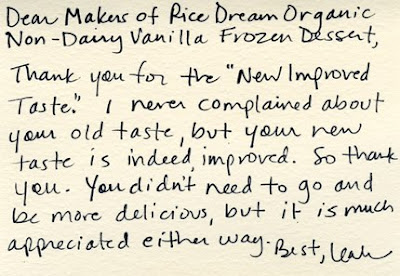 Dear Makers of Rice Dream Organic
Non-Dairy Vanilla Frozen Dessert,
Thank you for the "New Improved
Taste." I never complained about
your old taste, but your new
taste is indeed, improved. So thank
you. You didn't need to go and
be more delicious, but it is much
appreciated either way. Best, Leah